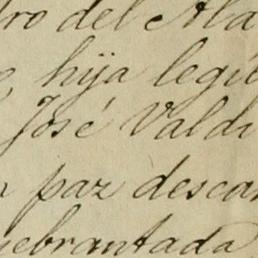 ro del Ala
hija legi
José Valdi
n paz descan
uebrantada